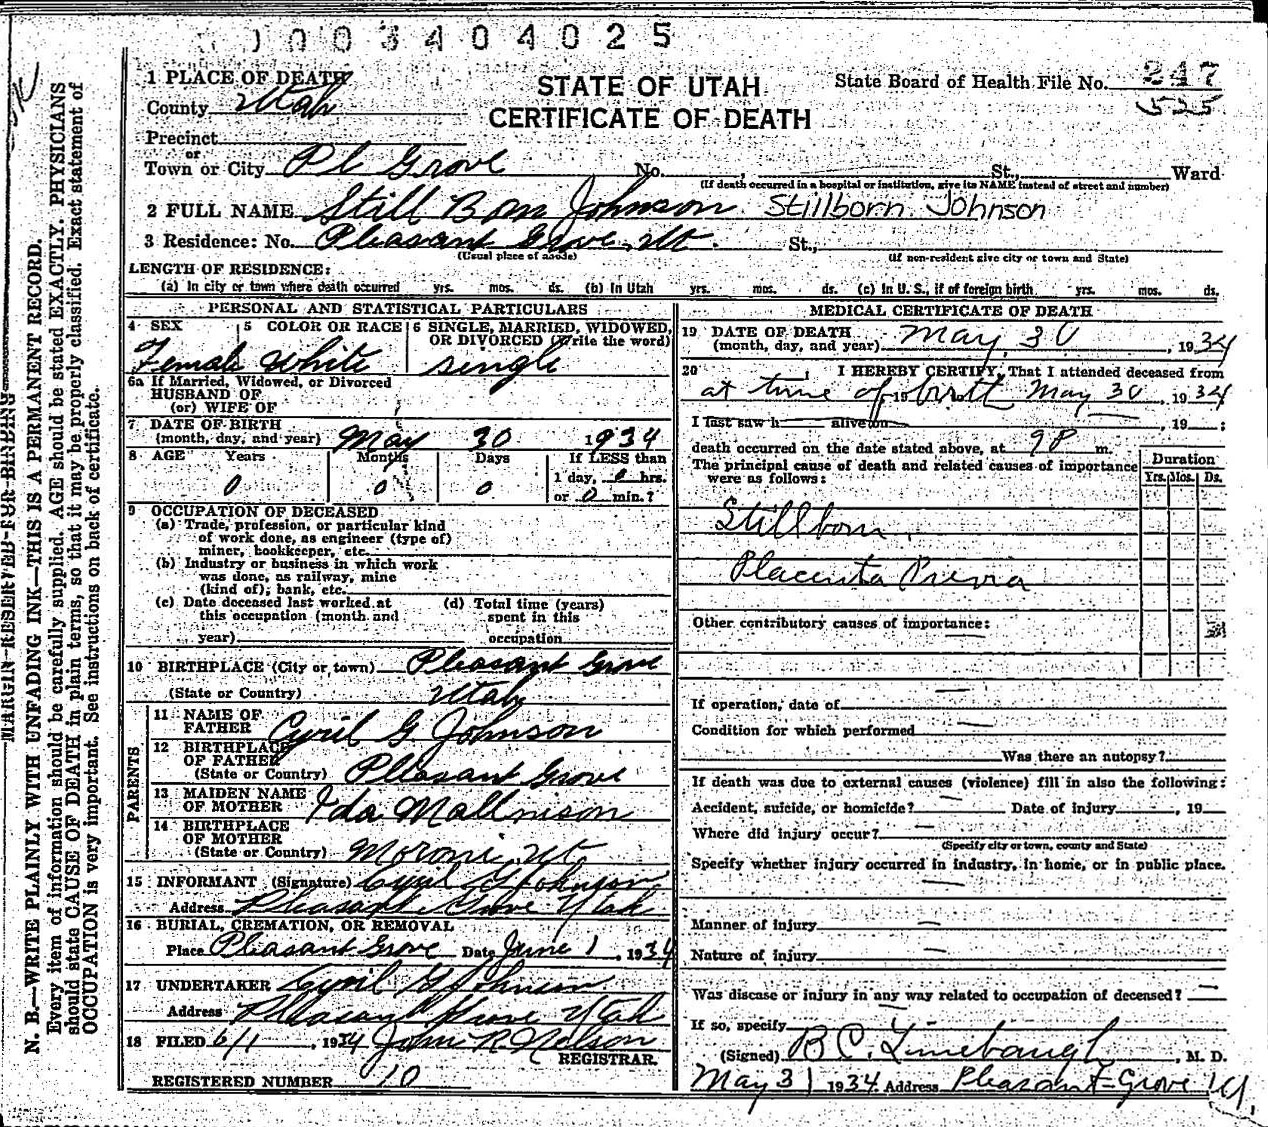 1003404025
1 PLACE OF DEATH
County Utah
STATE OF UTAH
CERTIFICATE OF DEATH
State Board of Health File No. 247
525
Precinct
or
Town or City Pl Grove No. St., Ward
(If death occurred in a hospital or institution, give its NAME instead of street and number)
2 FULL NAME Still Born Johnson Stillborn Johnson
3 Residence: No. Pleasant Grove, Ut. St.,
(Usual place of abode) (If non-resident give city or town and State)
LENGTH OF RESIDENCE:
(a) In city or town where death occurred yrs. mos. ds. (b) In Utah yrs. mos. ds. (c) In U. S., if of foreign birth yrs. mos. ds.
PERSONAL AND STATISTICAL PARTICULARS
4 SEX 5 COLOR OR RACE 6 SINGLE, MARRIED, WIDOWED,
OR DIVORCED (Write the word)
Female White single
6a If Married, Widowed, or Divorced
HUSBAND OF
(or) WIFE OF
7 DATE OF BIRTH
(month, day, and year) May 30 1934
8 AGE Years Months Days If LESS than
0 0 0 1 day, 0 hrs.
or 0 min.?
9 OCCUPATION OF DECEASED
(a) Trade, profession, or particular kind
of work done, as engineer (type of)
miner, bookkeeper, etc.
(b) Industry or business in which work
was done, as railway, mine
(kind of); bank, etc.
(c) Date deceased last worked at (d) Total time (years)
this occupation (month and spent in this
year) occupation
10 BIRTHPLACE (City or town) Pleasant Grove
(State or Country) Utah
PARENTS
11 NAME OF
FATHER Cyril G Johnson
12 BIRTHPLACE
OF FATHER
(State or Country) Pleasant Grove
13 MAIDEN NAME
OF MOTHER Ida Mallnison
14 BIRTHPLACE
OF MOTHER
(State or Country) Moroni, Ut
15 INFORMANT (Signature) Cyril G Johnson
Address Pleasant Grove Utah
16 BURIAL, CREMATION, OR REMOVAL
Place Pleasant Grove Date June 1, 1934
17 UNDERTAKER Cyril G Johnson
Address Pleasant Grove Utah
18 FILED 6/1, 1934 John R Nelson
REGISTRAR.
REGISTERED NUMBER 10
MEDICAL CERTIFICATE OF DEATH
19 DATE OF DEATH
(month, day, and year) May 30, 1934
20 I HEREBY CERTIFY, That I attended deceased from
at time of 19 birth May 30, 1934
I last saw h alive on , 19 ;
death occurred on the date stated above, at 9P m.
The principal cause of death and related causes of importance
were as follows:
Duration
Yrs. Mos. Ds.
Stillborn.
Placenta Previa
Other contributory causes of importance:
If operation, date of
Condition for which performed
Was there an autopsy?
If death was due to external causes (violence) fill in also the following:
Accident, suicide, or homicide? Date of injury , 19
Where did injury occur?
(Specify city or town, county and State)
Specify whether injury occurred in industry, in home, or in public place.
Manner of injury
Nature of injury
Was disease or injury in any way related to occupation of deceased?
If so, specify
(Signed) B C. Linebaugh, M. D.
May 31 1934 Address Pleasant Grove Ut.
MARGIN RESERVED FOR BINDING
N. B.—WRITE PLAINLY WITH UNFADING INK—THIS IS A PERMANENT RECORD.
Every item of information should be carefully supplied. AGE should be stated EXACTLY. PHYSICIANS
should state CAUSE OF DEATH in plain terms, so that it may be properly classified. Exact statement of
OCCUPATION is very important. See instructions on back of certificate.